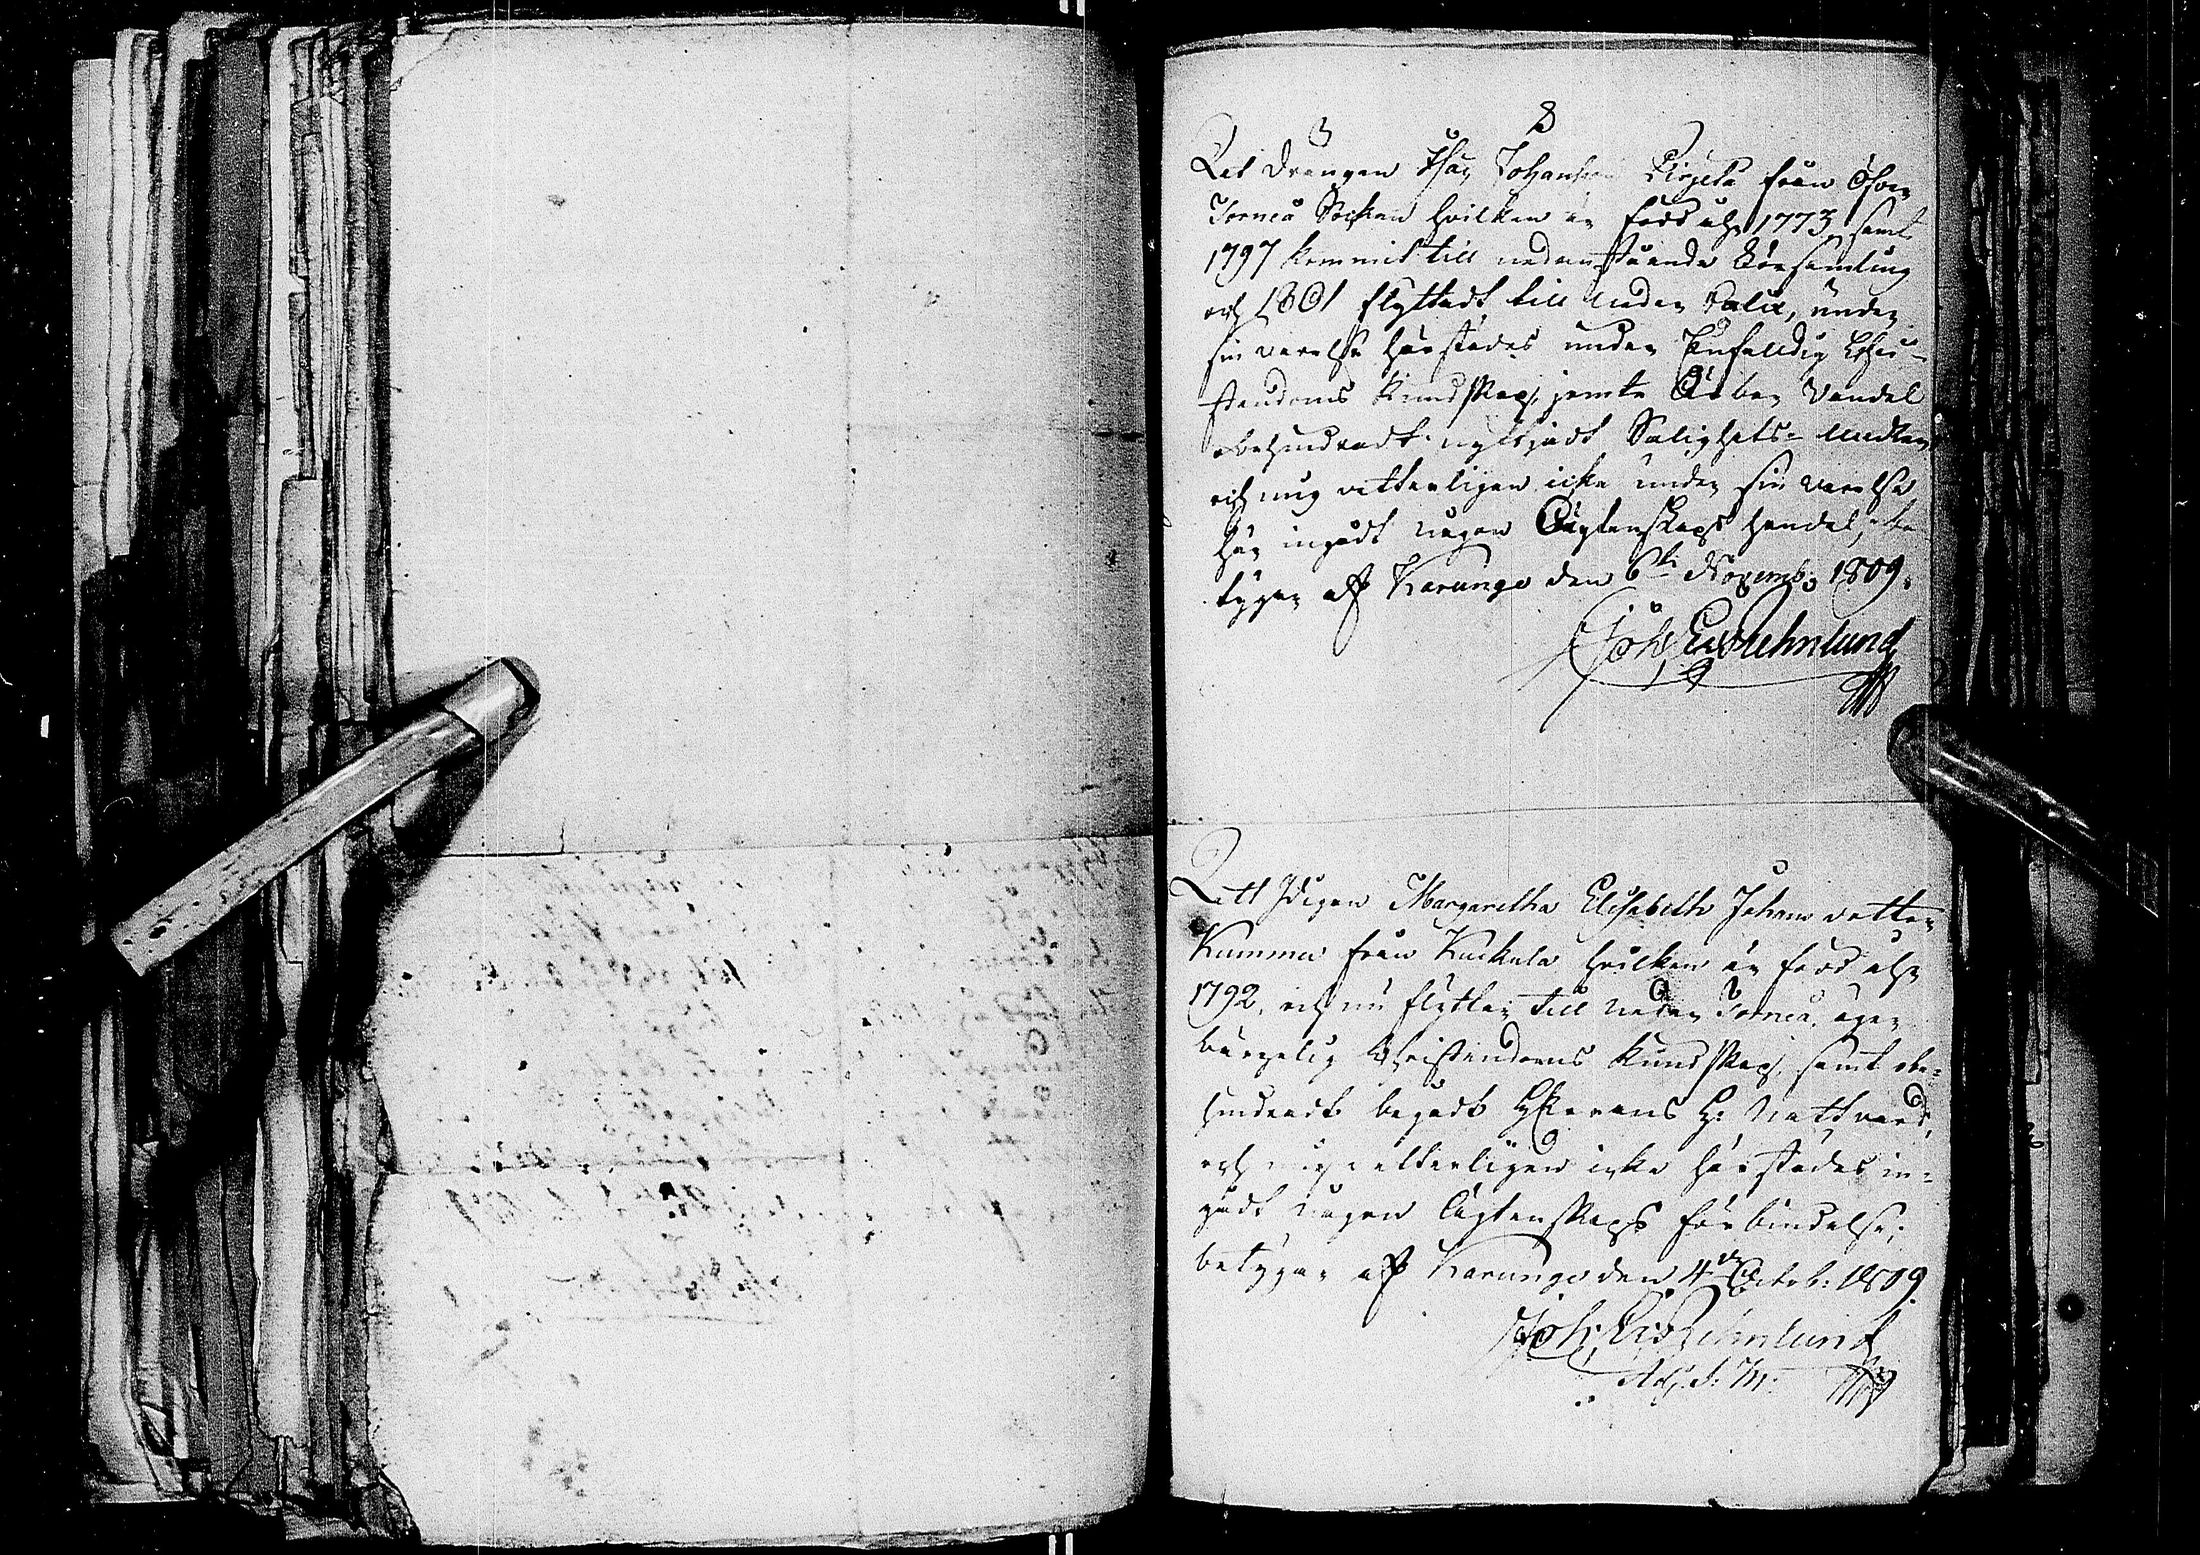 3 8
At Drängen Isac Johansson från Öfver
Torneå Sockn hvilken är född åhr 1773, samt
1797 kommit till nedanstående Församling
och 1801 flyttadt till Neder Calix, under
sin varelse härstädes under Enfalldig Chri-
stendoms Kundskap, jemte Ärbar Vandel
obehindradt nyttjadt Salighets-Medlen
och mig vetterligen icke under sin varelse
här ingådt någon Ägtenskaps handel, be
tygar af Karungi den 6te Novemb: 1809.
Joh: Er: Rehnlund
Att Pigan Margaretha Elisabeth Johans dotter
Kumma från Kuckula hvilken är född åhr
1792, och nu flyttar till Neder Torneå, äger
börgelig Christendoms Kundskap, samt obe-
hindradt begådt HErrans H: Nattvard,
och mig vetterligen icke härstädes in-
gådt någon Ägtenskaps förbindelse;
betygar af Karungi den 4de Octob: 1809.
Joh: Er: Rehnlund